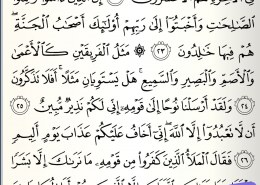 الصَّٰلِحَٰتِ وَأَخْبَتُوٓا۟ إِلَىٰ رَبِّهِمْ أُو۟لَٰٓئِكَ أَصْحَٰبُ ٱلْجَنَّةِ ۖ
هُمْ فِيهَا خَٰلِدُونَ ٢٣ ۞ مَثَلُ ٱلْفَرِيقَيْنِ كَٱلْأَعْمَىٰ
وَٱلْأَصَمِّ وَٱلْبَصِيرِ وَٱلسَّمِيعِ ۚ هَلْ يَسْتَوِيَانِ مَثَلًا ۚ أَفَلَا تَذَكَّرُونَ
٢٤ وَلَقَدْ أَرْسَلْنَا نُوحًا إِلَىٰ قَوْمِهِۦٓ إِنِّى لَكُمْ نَذِيرٌ مُّبِينٌ ٢٥
أَن لَّا تَعْبُدُوٓا۟ إِلَّا ٱللَّهَ ۖ إِنِّىٓ أَخَافُ عَلَيْكُمْ عَذَابَ يَوْمٍ أَلِيمٍ
٢٦ فَقَالَ ٱلْمَلَأُ ٱلَّذِينَ كَفَرُوا۟ مِن قَوْمِهِۦ مَا نَرَىٰكَ إِلَّا بَشَرًا